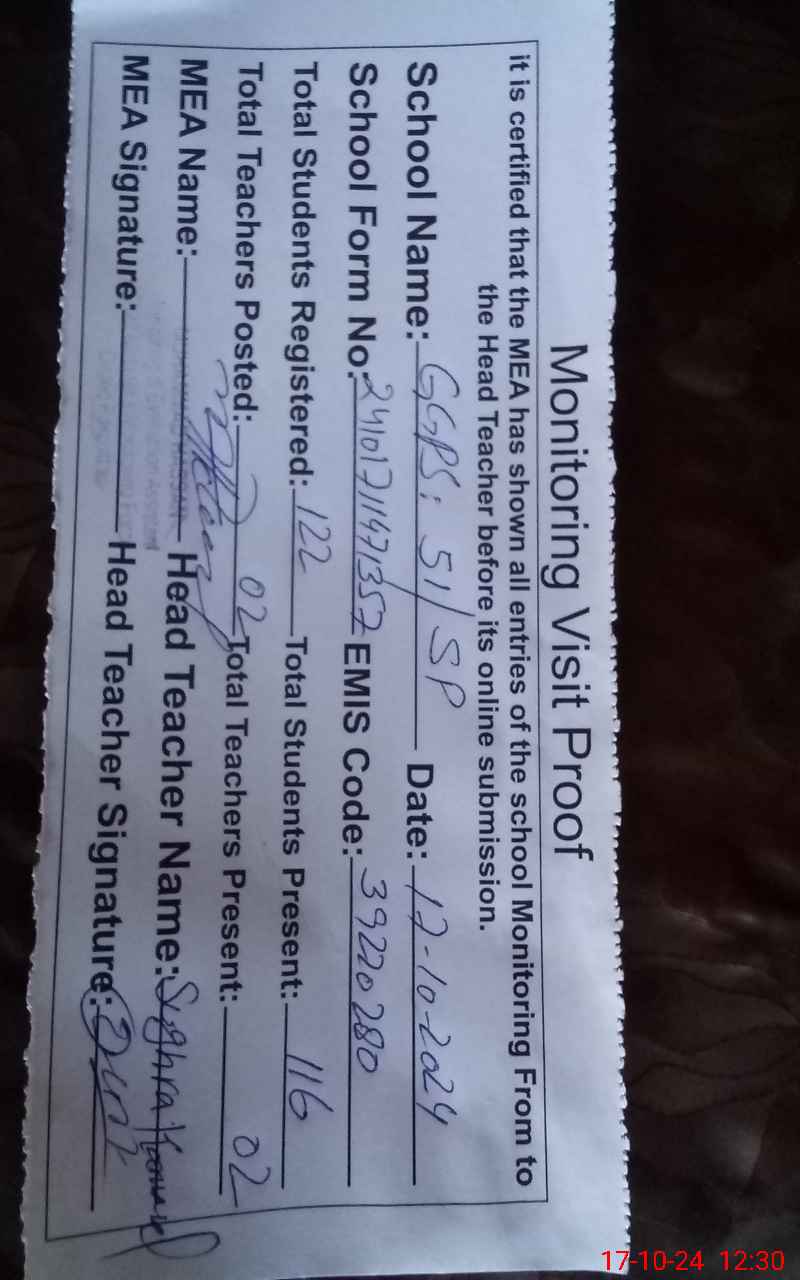 Monitoring Visit Proof
it is certified that the MEA has shown all entries of the school Monitoring From to
the Head Teacher before its online submission.
School Name: GGPS: 51/SP Date: 17-10-2024
School Form No. 24101711471357 EMIS Code: 39220280
Total Students Registered: 122 Total Students Present: 116
Total Teachers Posted: 02 Total Teachers Present: 02
MEA Name: Head Teacher Name: Sughra
MEA Signature: Head Teacher Signature:
17-10-24 12:30